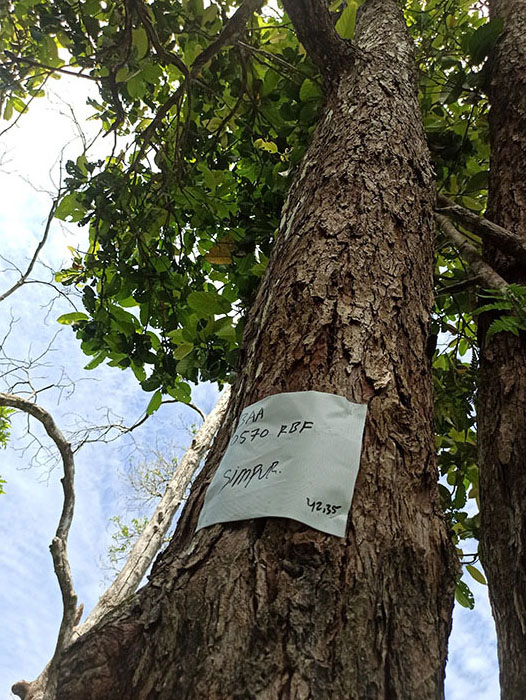 BAA
0570 RBF
SIMPUR.
42.35